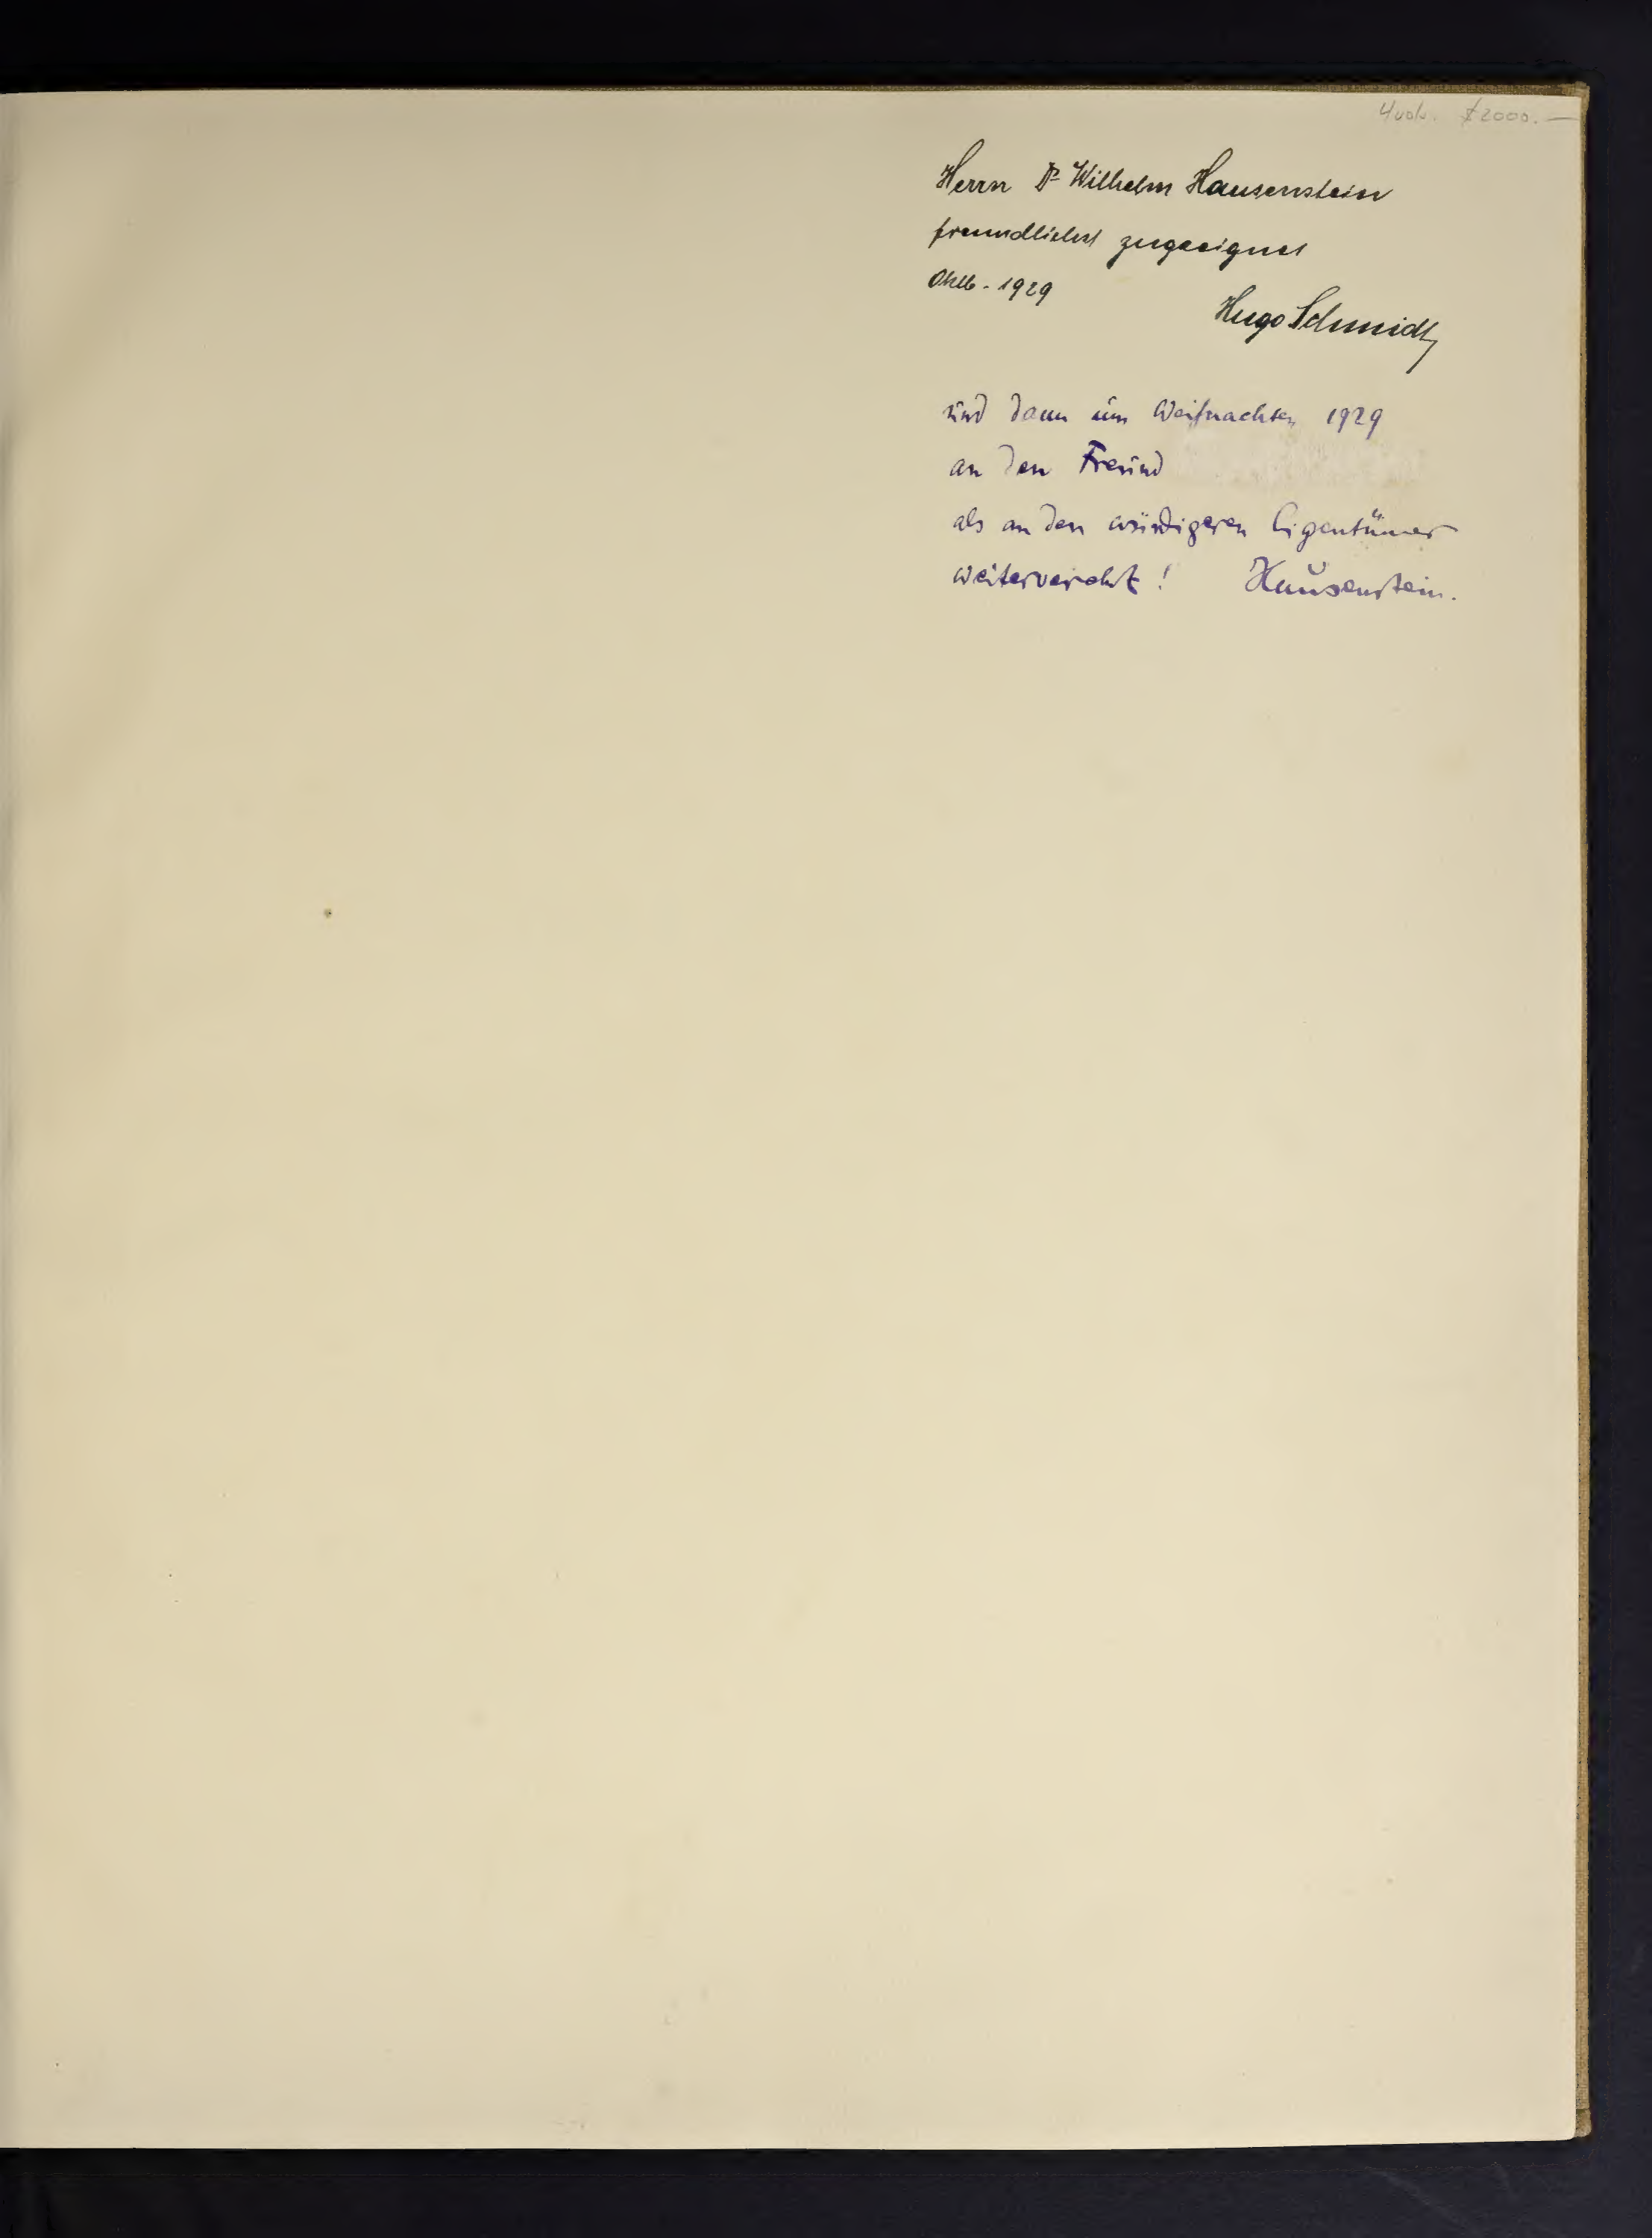 4 vols. $2000.—
Herrn Dr Wilhelm Hausenstein
freundlichst zugeeignet
Oktb - 1929
Hugo Schmidt
und dann um Weihnachten 1929
an den Freund
als an den würdigeren Eigentümer
weiterverehrt! Hausenstein.